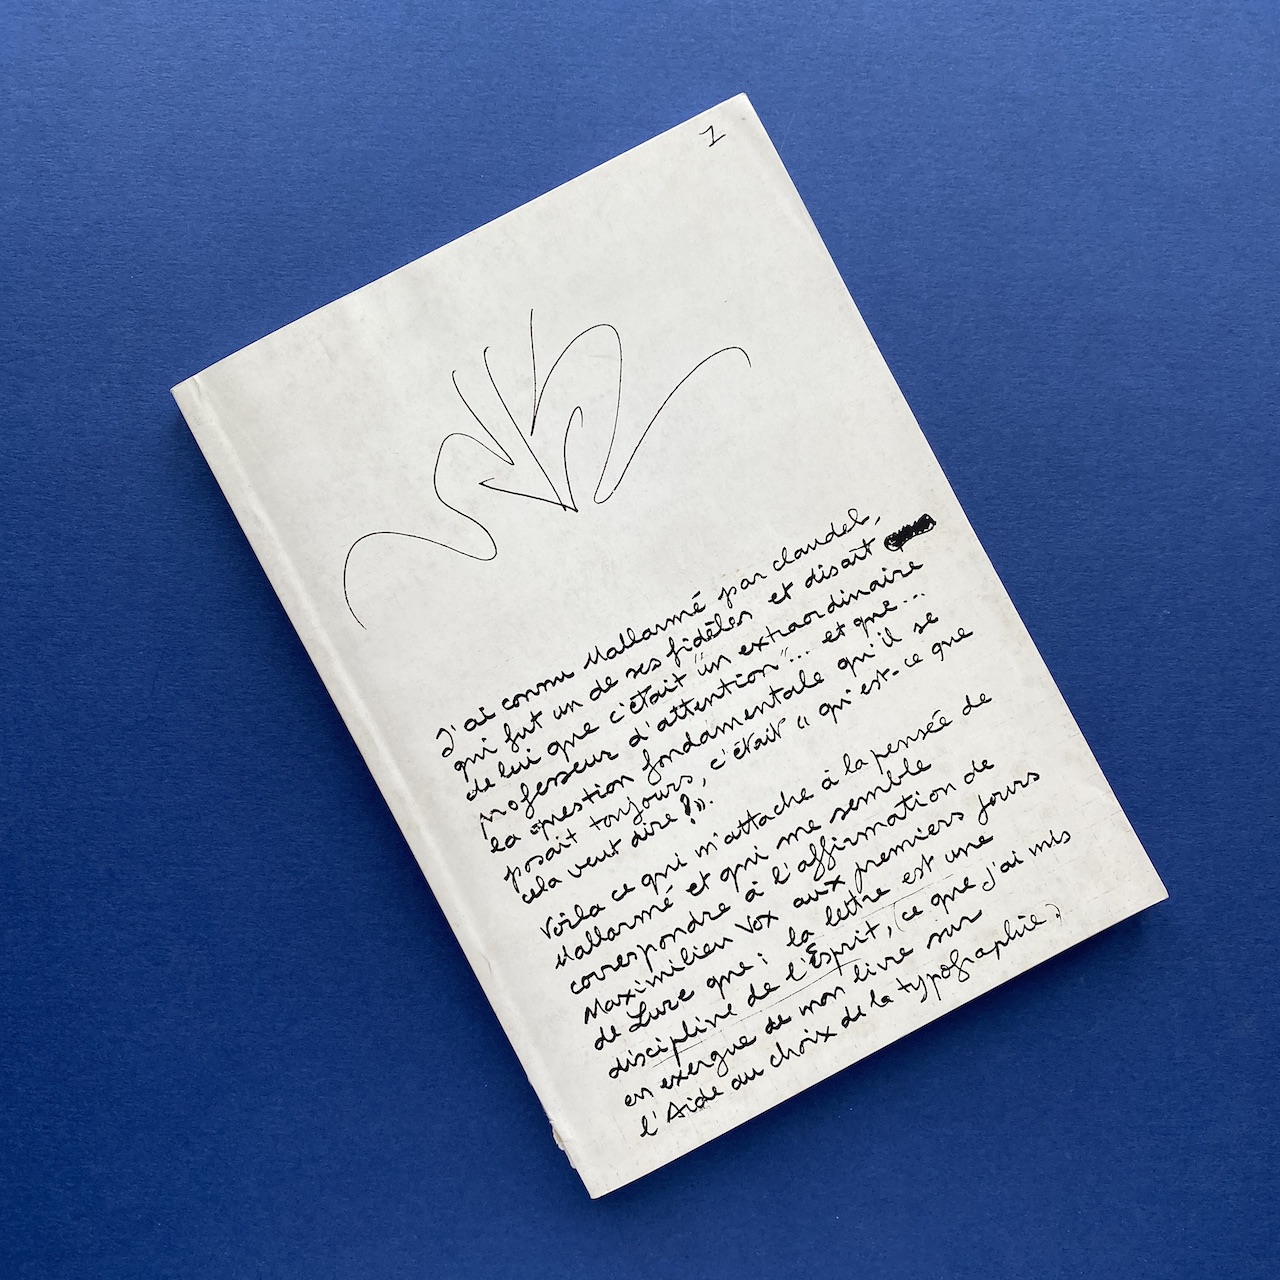 1
J'ai connu Mallarmé par Claudel,
qui fut un de ses fidèles et disait
de lui que c'était "un extraordinaire
professeur d'attention"... et que...
la question fondamentale qu'il se
posait toujours, c'était "qu'est-ce que
cela veut dire?".
Voilà ce qui m'attache à la pensée de
Mallarmé et qui me semble
correspondre à l'affirmation de
Maximilien Vox aux premiers jours
de Lure que: la lettre est une
discipline de l'Esprit, (ce que j'ai mis
en exergue de mon livre sur
l'Aide au choix de la typographie.)